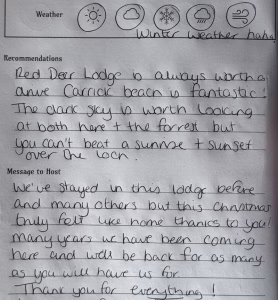 Weather
Winter Weather haha
Recommendations
Red Deer Lodge is always worth a
drive Carrick beach is fantastic!
The dark sky is worth looking
at both here + the forrest but
you can't beat a sunrise + sunset
over the loch.
Message to Host
We've stayed in this lodge before
and many others but this Christmas
truly felt like home thanks to you!
many years we have been coming
here and will be back for as many
as you will have us for
Thank you for everything!